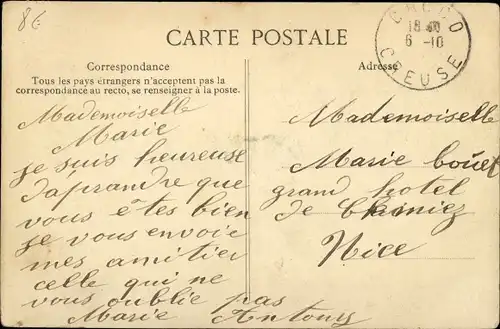 8€
CARTE POSTALE
CROCQ
18 40
6 -10
CREUSE
Correspondance
Tous les pays étrangers n'acceptent pas la
correspondance au recto, se renseigner à la poste.
Adresse
Mademoiselle
Marie
je suis heureuse
d'aprandre que
vous êtes bien
je vous envoie
mes amitier
celle qui ne
vous oublie pas
Marie Antony
Mademoiselle
Marie bouet
grand hotel
de
Nice